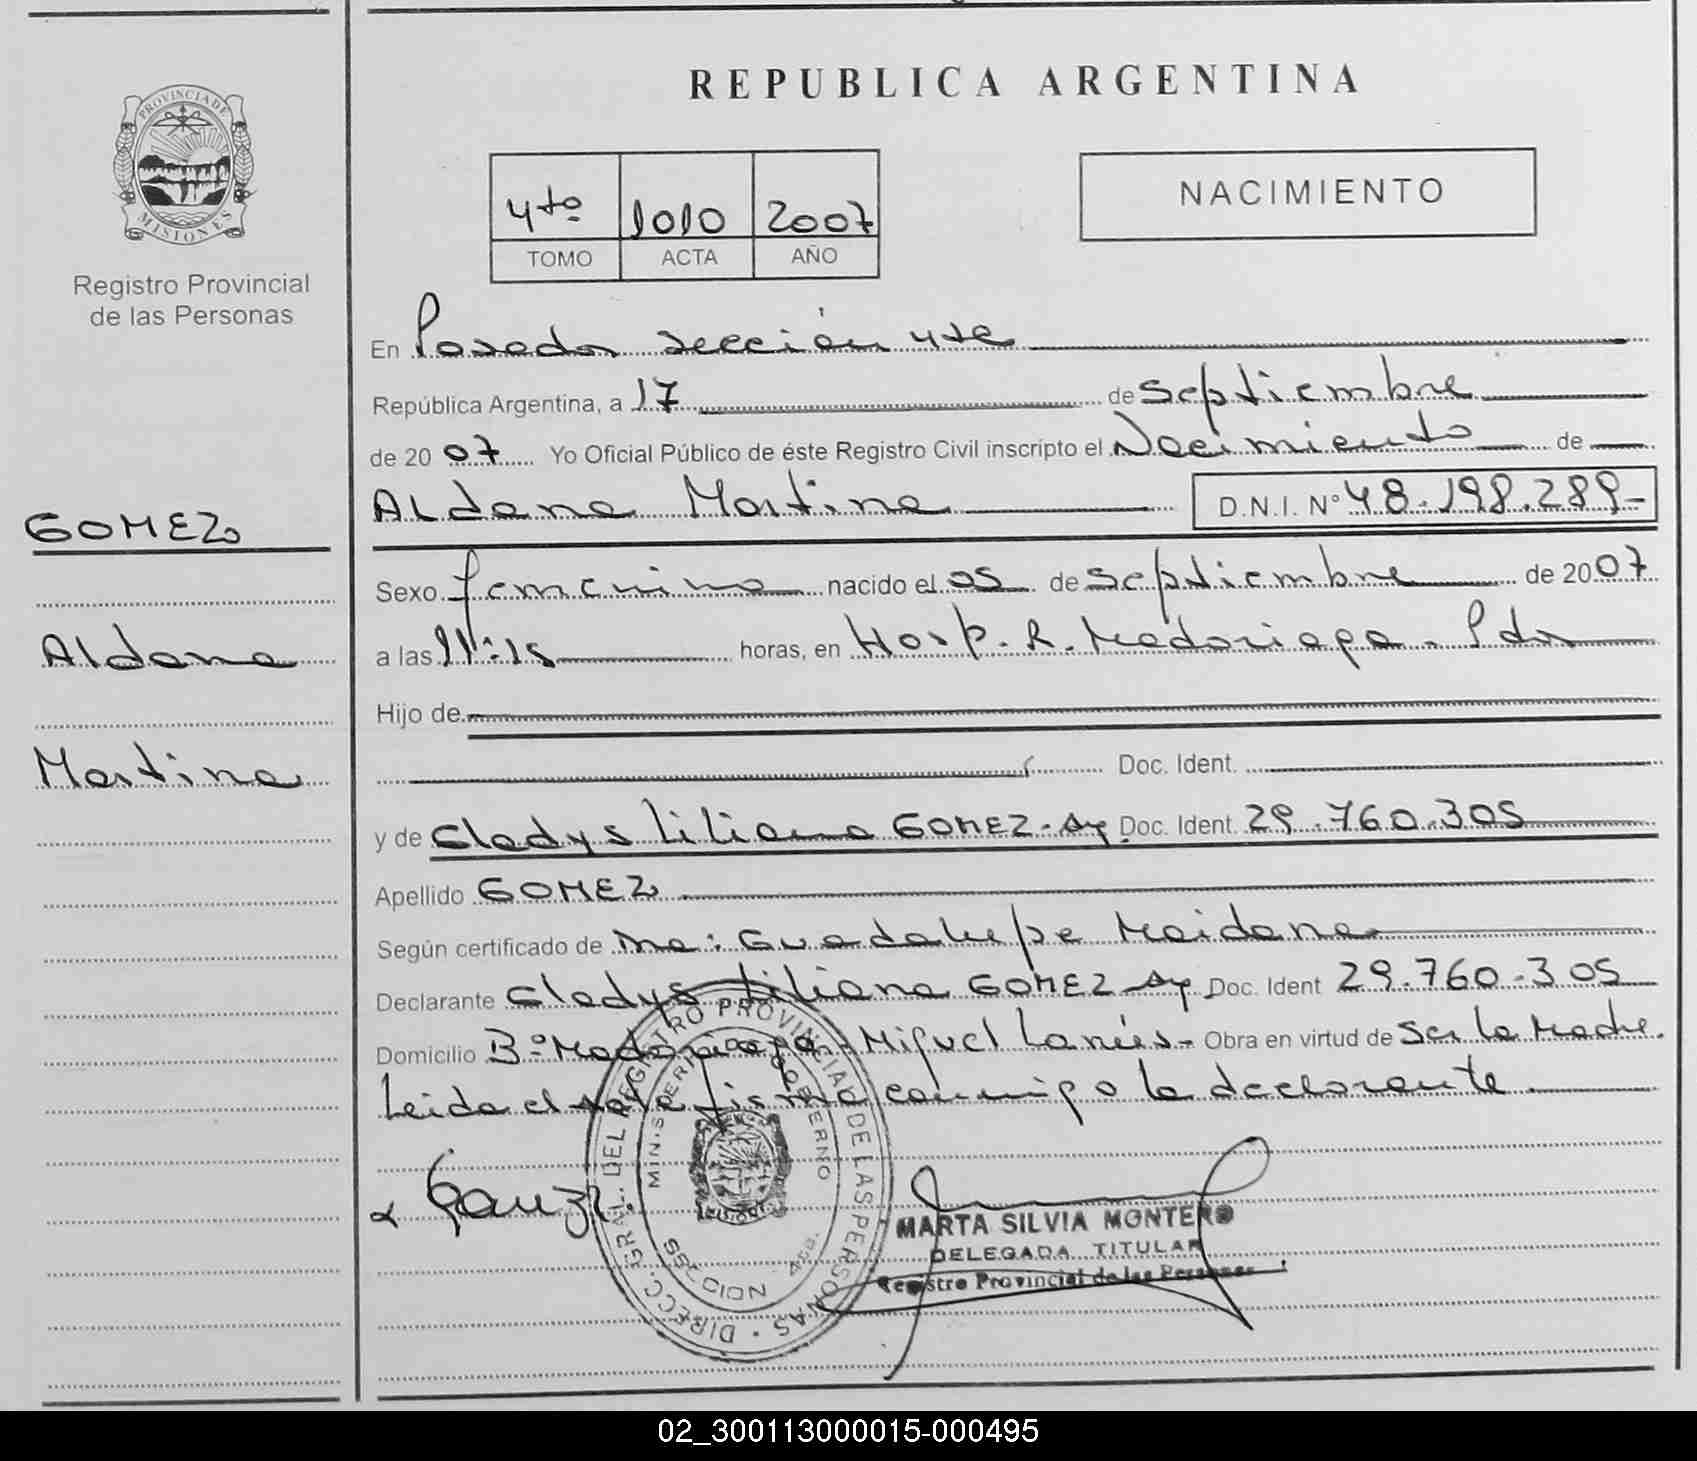 REPUBLICA ARGENTINA
PROVINCIA DE
MISIONES
Registro Provincial
de las Personas
4to 1010 2007
TOMO ACTA AÑO
NACIMIENTO
En Posadas sección 4ta
República Argentina, a 17 de septiembre
de 2007 Yo Oficial Público de éste Registro Civil inscripto el Nacimiento de
Aldana Martina D.N.I. Nº 48.198.289-
GOMEZ
Sexo femenino nacido el 05 de septiembre de 2007
Aldana
a las 11:15 horas, en Hosp. R. Madariaga - Pdas
Hijo de
Martina
Doc. Ident.
y de Gladys Liliana GOMEZ - Ay Doc. Ident. 29.760.305
Apellido GOMEZ
Según certificado de Ma: Guadalupe Maidana
Declarante Gladys Liliana GOMEZ Ay Doc. Ident 29.760.305
Domicilio Bº Madariaga - Miguel Lanús - Obra en virtud de ser la Madre.
Leida el acta firma conmigo la declarante
MARTA SILVIA MONTERO
DELEGADA TITULAR
Registro Provincial de las Personas
DIRECC. GRAL. DEL REGISTRO PROVINCIAL DE LAS PERSONAS
MINISTERIO GOBIERNO
SECCION 4ta.
02_300113000015-000495